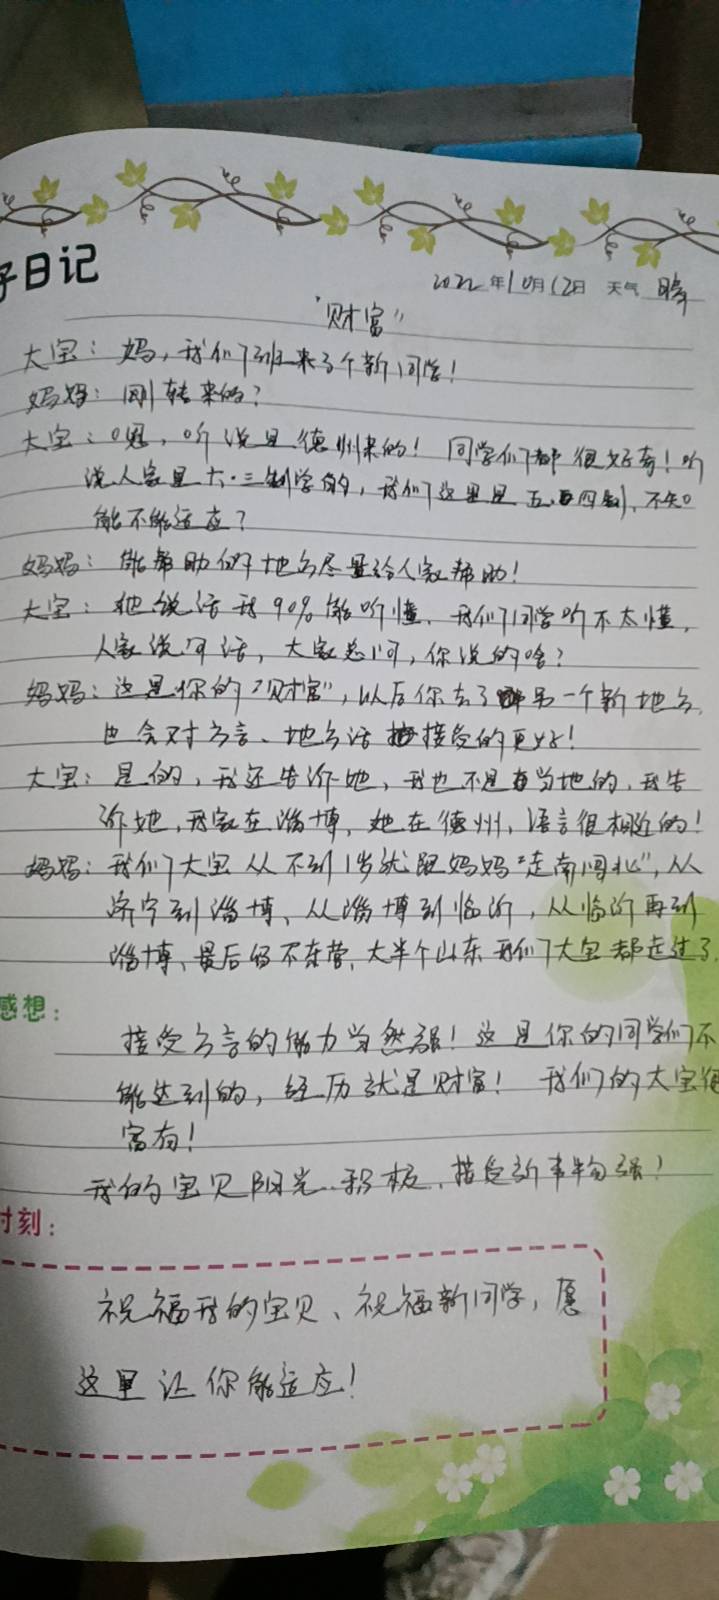 日记
2022年10月12日 天气 晴
"财富"
大宝：妈，我们班来了个新同学！
妈妈：刚转来的？
大宝：嗯，听说是德州来的！同学们都很好奇！听
说人家是六·三制学的，我们这里是五·四制，不知
能不能适应？
妈妈：能帮助的地方尽量给人家帮助！
大宝：她说话我90%能听懂，我们同学听不太懂，
人家说句话，大家总问，你说的啥？
妈妈：这是你的"财富"，以后你去了另一个新地方，
也会对方言、地方话接受的更好！
大宝：是的，我还告诉她，我也不是当地的，我告
诉她，我家在淄博，她在德州，语言很相近的！
妈妈：我们大宝从不到1岁就跟妈妈"走南闯北"，从
济宁到淄博、从淄博到临沂，从临沂再到
淄博、最后的东营，大半个山东我们大宝都走过了，
感想：
接受方言的能力当然强！这是你的同学们不
能达到的，经历就是财富！我们的大宝很
富有！
我的宝贝阳光、积极、接受新事物强！
时刻：
祝福我的宝贝、祝福新同学，愿
这里让你能适应！